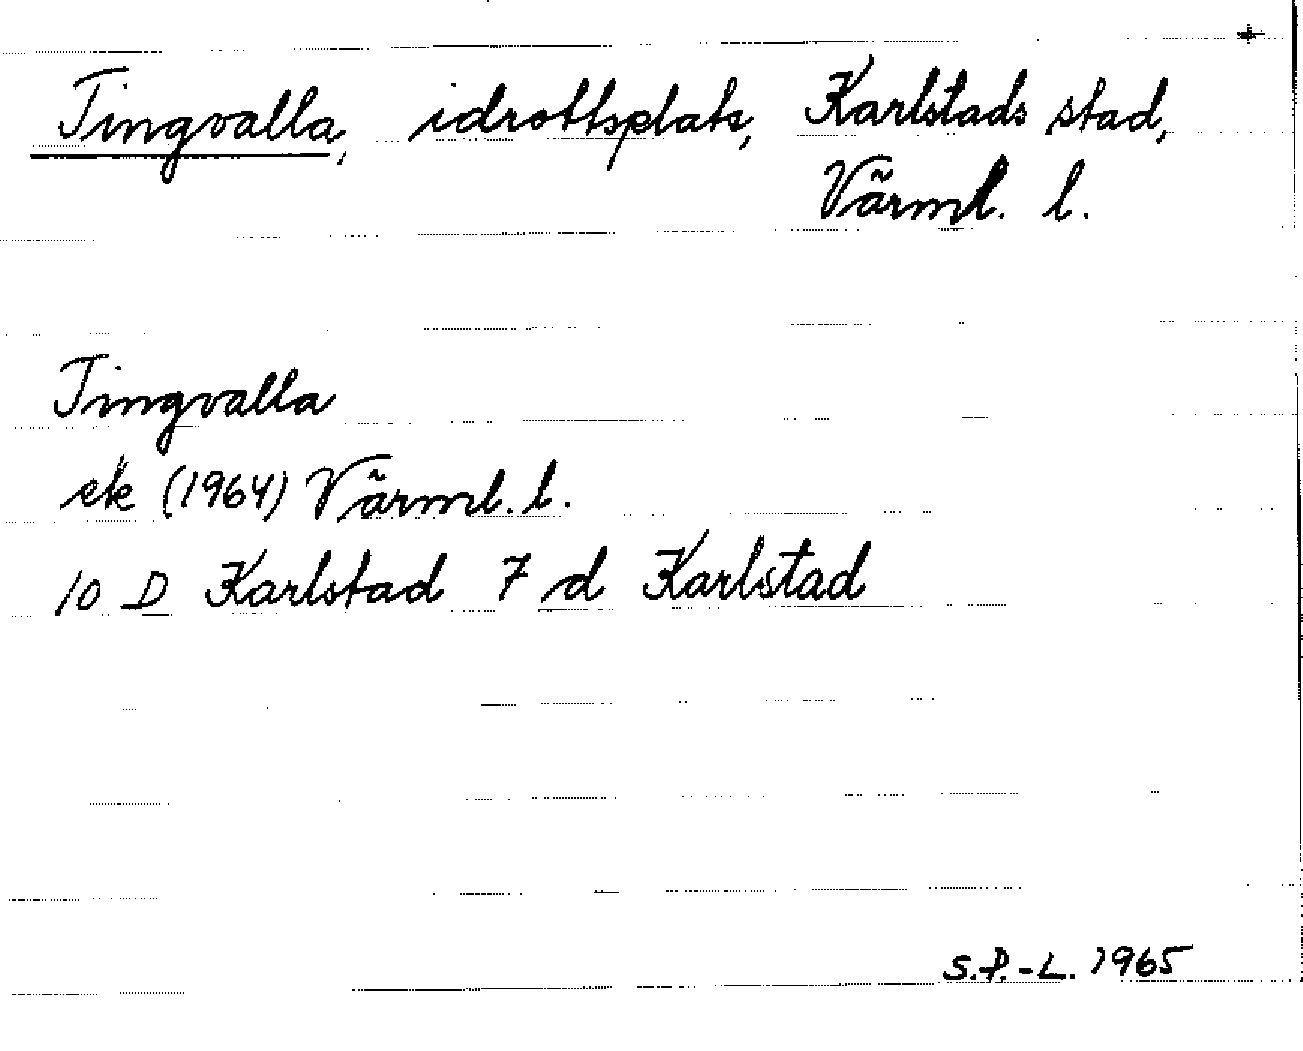 +
Tingvalla, idrottsplats, Karlstads stad,
Värml. l.
Tingvalla
ek (1964) Värml. l.
10 D Karlstad 7 d Karlstad
S.P.-L. 1965